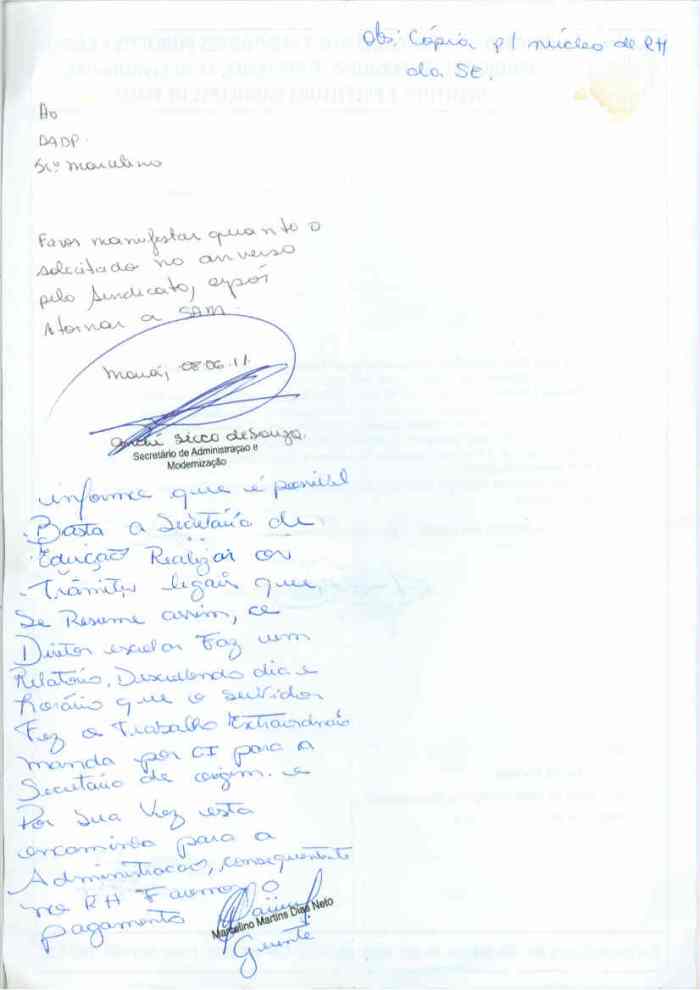 Obs: Cópia p/ núcleo de RH
da SE.
Ao
DADP.
Sr.º Marcelino
Favor manifestar quanto o
solicitado no anverso
pelo Sindicato, após
retornar a SAM.
Mauá, 08.06.11.
André Sicco de Souza.
Secretário de Administração e
Modernização
informo que é possivel
Basta a Secretária de
Edução Realizar os
Trâmites legais que
Se Resume assim, ce
Diretor escolar Faz um
Relatório, Descrevendo dia e
horário que o servidor
Fez o Trabalho Extraordinário
manda por CI para a
Secretária de origem. e
Por sua Vez esta
encaminha para a
Administracao, consequentente
no RH Faremos o
pagamento
Marcelino Martins Dias Neto
Gerente